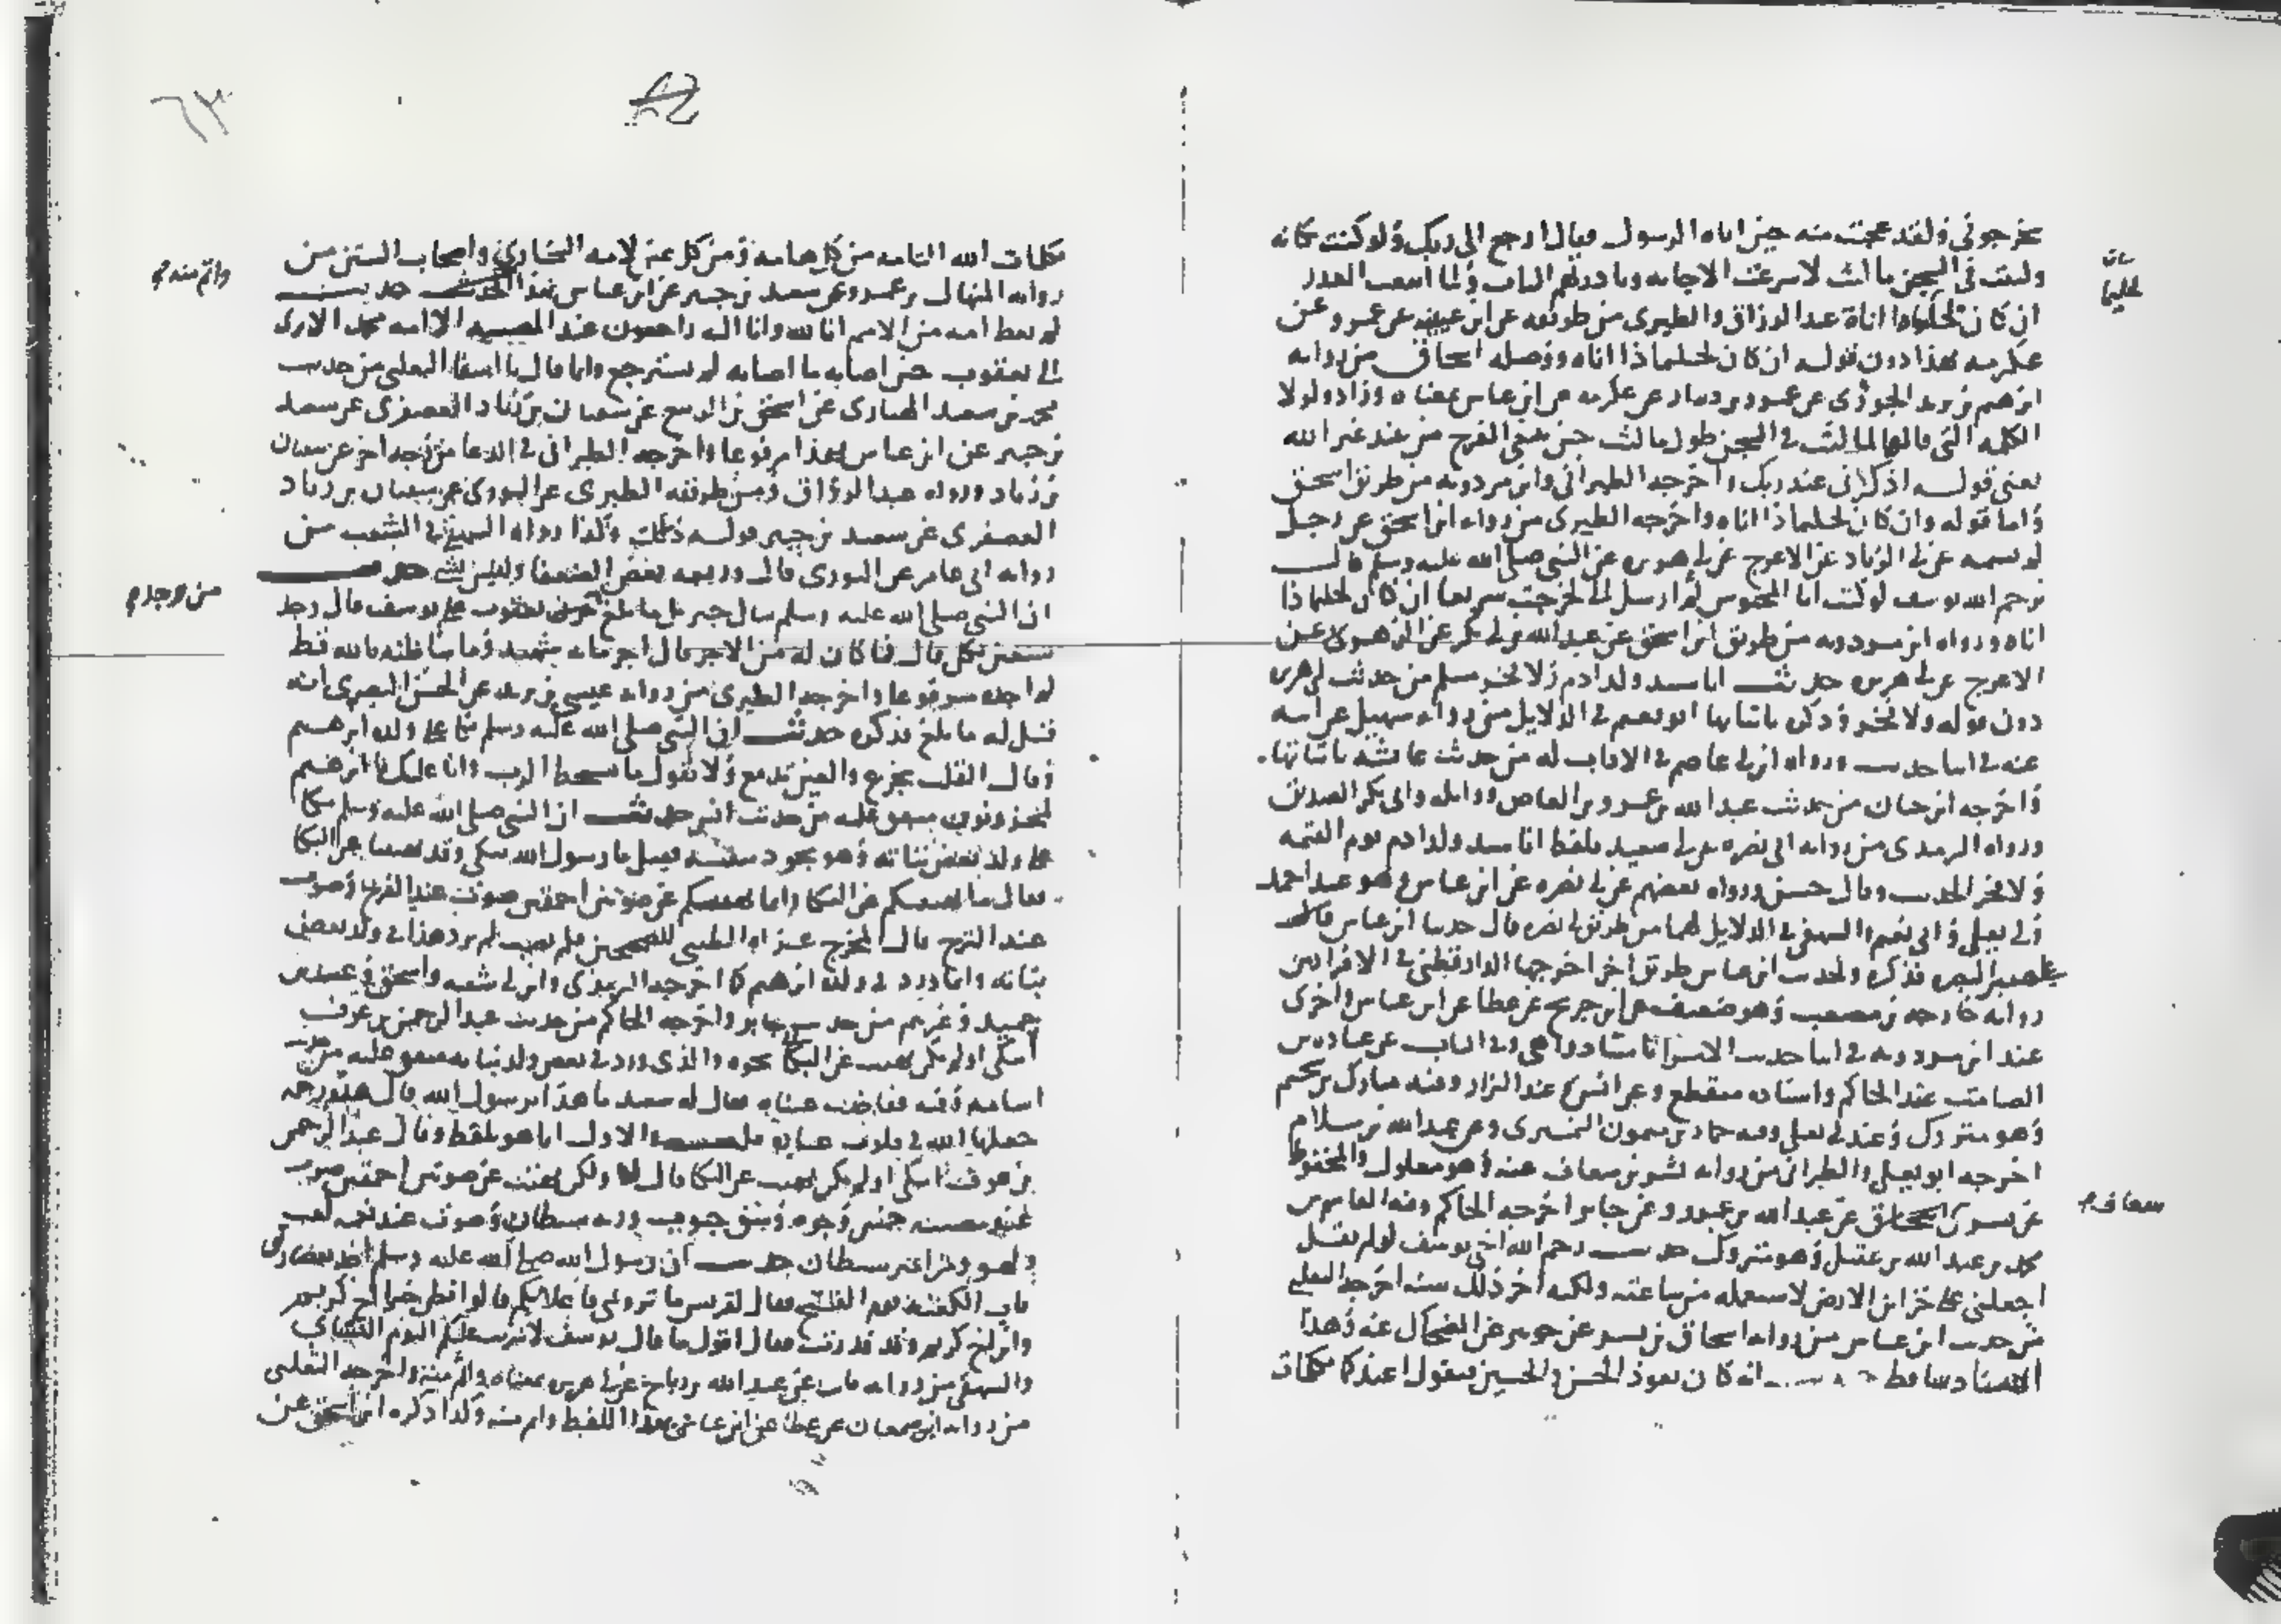 يخرجوني ولقد عجبت منه حين اتاه الرسول فقال ارجع الى ربك ولو كنت مكانه
ولبثت في السجن ما لبث لاسرعت الاجابه وبادرتهم الباب ولما ابتغيت العذر
ان كان لحليما ذا اناة عبد الرزاق والطبري من طريقه عن ابن عيينه عن عمرو عن
عكرمه بهذا دون قوله ان كان لحليما ذا اناه ووصله اسحاق من روايه
ابرهيم بن يزيد الخوزي عن عمرو بن دينار عن عكرمه عن ابن عباس بمعناه وزاد ولولا
الكلمه التي قالها لما لبث في السجن طول ما لبث حين يبتغي الفرج من عند غير الله
يعني قوله اذكرني عند ربك واخرجه الطبراني وابن مردويه من طريق اسحق
واما قوله وان كان لحليما ذا اناه واخرجه الطبري من روايه ابن اسحق عن رجل
لم يسمه عن ابي الزناد عن الاعرج عن ابي هريره عن النبي صلى الله عليه وسلم قال
يرحم الله يوسف لو كنت انا المحبوس ثم ارسل الي لخرجت سريعا ان كان لحليما ذا
اناه ورواه ابن مردويه من طريق ابن اسحق عن عبد الله بن ابي بكر عن الزهري عن
الاعرج عن ابي هريره حديث انا سيد ولد ادم ولا فخر مسلم من حديث ابي هريره
دون قوله ولا فخر وذكره باثباتها ابو نعيم في الدلايل من روايه سهيل عن ابيه
عنه في اثنا حديث ورواه ابن ابي عاصم في الاداب له من حديث عايشه باثباتها
واخرجه ابن حبان من حديث عبد الله بن عمرو بن العاص وواثله وابي بكر الصديق
ورواه الترمذي من روايه ابي نضره عن ابي سعيد بلفظ انا سيد ولد ادم يوم القيمه
ولا فخر الحديث وقال حسن ورواه بعضهم عن ابي نضره عن ابن عباس وهو عند احمد
وابي يعلى وابي نعيم والبيهقي في الدلايل لهما من طريق ابي نضره قال حدثنا ابن عباس قال
على منبر البصره فذكره ولحديث ابن عباس طريق اخرى اخرجها الدارقطني في الافراد من
روايه خارجه بن مصعب وهو ضعيف عن ابن جريج عن عطا عن ابن عباس واخرى
عند ابن مردويه في اثنا حديث الاسرا باسناد واهي وفي الباب عن عباده بن
الصامت عند الحاكم واسناده منقطع وعن انس عند البزار وفيه مبارك بن سحيم
وهو متروك وعند ابي يعلى وفيه حماد بن ميمون وعن عبد الله بن سلام
اخرجه ابو يعلى والطبراني من روايه بشر بن شغاف عنه وهو معلول والمحفوظ
عن بشر عن عبد الله بن عمرو وعن جابر اخرجه الحاكم وفيه القاسم بن
محمد بن عبد الله بن عقيل وهو متروك حديث رحم الله اخي يوسف لو لم يقل
اجعلني على خزاين الارض لاستعمله من ساعته ولكنه اخر ذلك سنه اخرجه الثعلبي
من حديث ابن عباس من روايه اسحاق بن بشر عن جويبر عن الضحاك عنه وهذا
الاسناد ساقط انه كان يعوذ الحسن والحسين فيقول اعيذكما بكلمات
شغاف
بكلمات الله التامه من كل هامه ومن كل عين لامه البخاري واصحاب السنن من
روايه المنهال بن عمرو عن سعيد بن جبير عن ابن عباس بهذا الحديث حديث
لم يعط امه من الامم انا لله وانا اليه راجعون عند المصيبه الا امه محمد الا ترى
الى يعقوب حين اصابه ما اصابه لم يسترجع وانما قال يا اسفا الثعلبي من حديث
محمد بن سعيد عن اسحق بن الربيع عن سفيان بن زياد العصفري عن سعيد
بن جبير عن ابن عباس بهذا مرفوعا واخرجه الطبراني في الدعا من وجه اخر عن سفيان
بن زياد ورواه عبد الرزاق ومن طريقه الطبري عن الثوري عن سفيان بن زياد
العصفري عن سعيد بن جبير قوله وكذا رواه البيهقي في الشعب من
روايه ابي عامر عن الثوري قال ورفعه بعض الضعفا وليس بشي حديث
ان النبي صلى الله عليه وسلم سال جبريل ما بلغ حزن يعقوب على يوسف قال وجد
سبعين ثكلى قال فما كان له من الاجر قال اجر مايه شهيد وما سا ظنه بالله قط
لم اجده مرفوعا واخرجه الطبري من روايه عيسى بن يزيد عن الحسن البصري انه
قيل له ما بلغ فذكره حديث ان النبي صلى الله عليه وسلم بكا على ولده ابرهيم
وقال القلب يجزع والعين تدمع ولا نقول ما يسخط الرب وانا عليك يا ابرهيم
لمحزونون متفق عليه من حديث انس حديث ان النبي صلى الله عليه وسلم بكا
على ولد بعض بناته وهو يجود بنفسه فقيل يا رسول الله تبكي وقد نهيتنا عن البكا
فقال ما نهيتكم عن البكا وانما نهيتكم عن صوتين احمقين صوت عند الفرح وصوت
عند الترح قال المخرج لم يرد هذا في ولد بعض
بناته وانما ورد في ولده ابرهيم كما اخرجه الترمذي وابن ابي شيبه واسحق وعبد بن
حميد وغيرهم من حديث جابر واخرجه الحاكم من حديث عبد الرحمن بن عوف
اتبكي اولم تكن نهيت عن البكا نحوه والذي ورد في بعض ولد بناته متفق عليه من حديث
اسامه وفيه ففاضت عيناه فقال له سعد ما هذا يرسول الله قال هذه رحمه
جعلها الله في قلوب عباده الاول انما هو بلفظ وقال عبد الرحمن
بن عوف اتبكي اولم تكن نهيت عن البكا قال لا ولكن نهيت عن صوتين احمقين صوت
عند مصيبه خمش وجوه وشق جيوب ورنه شيطان وصوت عند نغمه لعب
ولهو ومزامير شيطان حديث ان رسول الله صلى الله عليه وسلم اخذ بعضادتي
باب الكعبه يوم الفتح فقال لقريش ما تروني فاعلا بكم قالوا نظن خيرا اخ كريم
وابن اخ كريم وقد قدرت فقال اقول ما قال يوسف لا تثريب عليكم اليوم
والبيهقي من روايه ثابت عن عبد الله بن رباح عن ابي هريره بمعناه واتم منه واخرجه الثعلبي
من روايه ابن سمعان عن عطا عن ابن عباس بهذا اللفظ واتم منه وكذا ذكره ابن اسحق عن